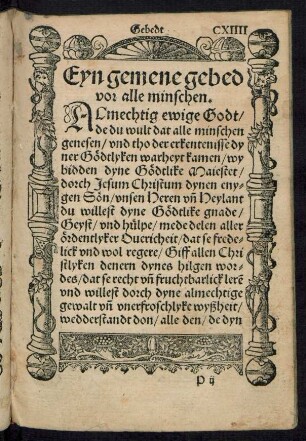 Gebedt CXIIII
Eyn gemene gebed
vor alle minschen.
ALmechtig ewige Godt/
de du wult dat alle minschen
genesen/ vnd tho der erkentenisse dy
ner Gödtlyken warheyt kamen/ wy
bidden dyne Gödtlike Maiestet/
dorch Jesum Christum dynen eny-
gen Sön/ vnsen Heren vñ Heylant
du willest dyne Gödtlike gnade/
Geyst/ vnd hülpe/ mede delen aller
ördentlyker Ouericheit/ dat se frede-
lick vnd wol regere/ Giff allen Chri
stlyken denern dynes hilgen wor-
des/ dat se recht vñ fruchtbarlick lerē
vnd willest dorch dyne almechtige
gewalt vñ vnerfroschlyke wyßheit/
wedderstandt don/ alle den/ de dyn
P ij